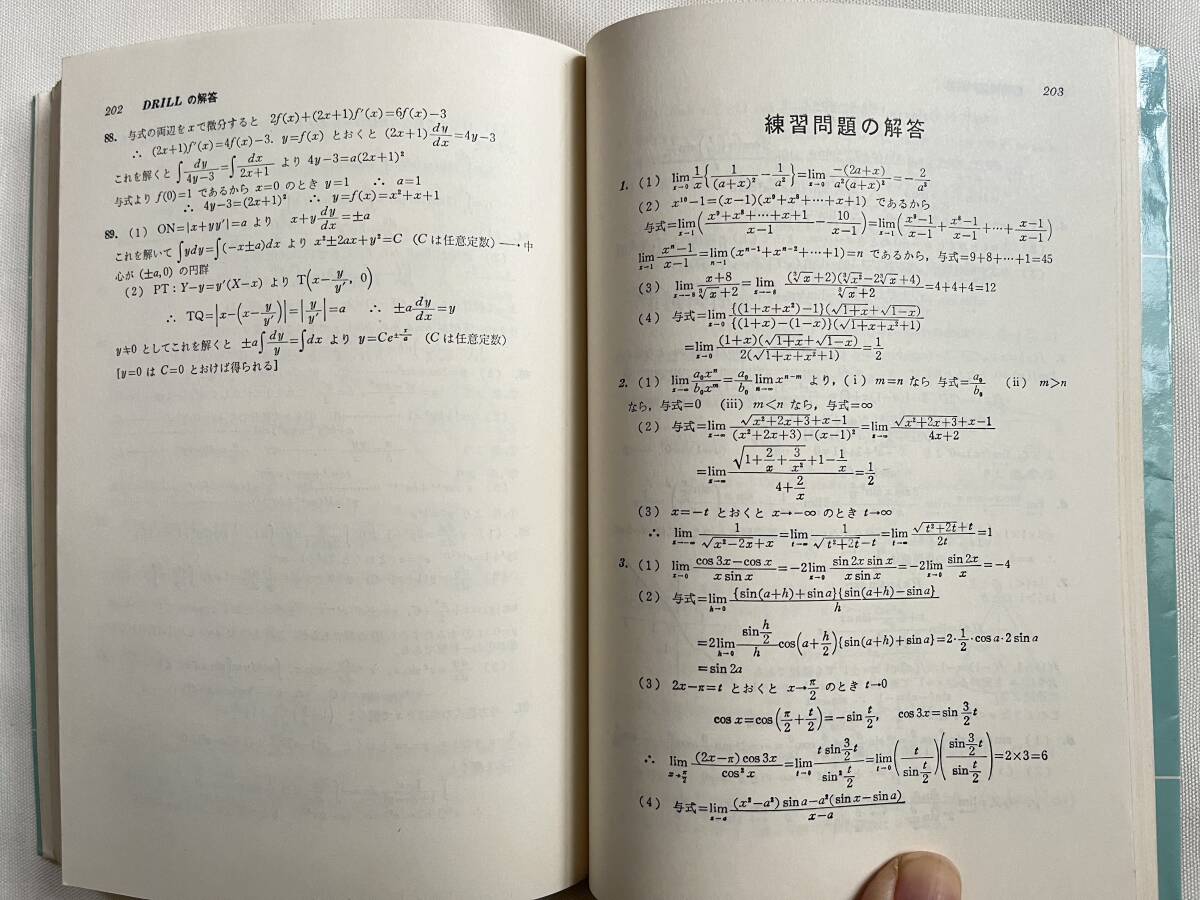 202 DRILL の解答
88. 与式の両辺をxで微分すると 2f(x)+(2x+1)f′(x)=6f(x)−3
∴ (2x+1)f′(x)=4f(x)−3. y=f(x) とおくと (2x+1)dy/dx=4y−3
これを解くと ∫dy/(4y−3)=∫dx/(2x+1) より 4y−3=a(2x+1)²
与式より f(0)=1 であるから x=0 のとき y=1 ∴ a=1
∴ 4y−3=(2x+1)² ∴ y=f(x)=x²+x+1
89. (1) ON=|x+yy′|=a より x+y dy/dx=±a
これを解いて ∫ydy=∫(−x±a)dx より x²±2ax+y²=C (Cは任意定数) → 中
心が (±a, 0) の円群
(2) PT : Y−y=y′(X−x) より T(x−y/y′, 0)
∴ TQ=|x−(x−y/y′)|=|y/y′|=a ∴ ±a dy/dx=y
y≠0 としてこれを解くと ±a∫dy/y=∫dx より y=Ce^(±x/a) (Cは任意定数)
[y=0 は C=0 とおけば得られる]
203
練習問題の解答
1. (1) lim_{x→0} 1/x{1/(a+x)²−1/a²}=lim_{x→0} −(2a+x)/(a²(a+x)²)=−2/a³
(2) x¹⁰−1=(x−1)(x⁹+x⁸+…+x+1) であるから
与式=lim_{x→1}((x⁹+x⁸+…+x+1)/(x−1)−10/(x−1))=lim_{x→1}((x⁹−1)/(x−1)+(x⁸−1)/(x−1)+…+(x−1)/(x−1))
lim_{x→1} (xⁿ−1)/(x−1)=lim_{n→1}(xⁿ⁻¹+xⁿ⁻²+…+1)=n であるから, 与式=9+8+…+1=45
(3) lim_{x→−8} (x+8)/(∛x+2)=lim_{x→−8} (∛x+2)(∛x²−2∛x+4)/(∛x+2)=4+4+4=12
(4) 与式=lim_{x→0} {(1+x+x²)−1}(√(1+x)+√(1−x))/({(1+x)−(1−x)}(√(1+x+x²)+1))
=lim_{x→0} (1+x)(√(1+x)+√(1−x))/(2(√(1+x+x²)+1))=1/2
2. (1) lim_{x→∞} a₀xⁿ/b₀xᵐ=a₀/b₀ lim_{n→∞} xⁿ⁻ᵐ より, (i) m=n なら 与式=a₀/b₀ (ii) m>n
なら, 与式=0 (iii) m<n なら, 与式=∞
(2) 与式=lim_{x→∞} (√(x²+2x+3)+x−1)/((x²+2x+3)−(x−1)²)=lim_{x→∞} (√(x²+2x+3)+x−1)/(4x+2)
=lim_{x→∞} (√(1+2/x+3/x²)+1−1/x)/(4+2/x)=1/2
(3) x=−t とおくと x→−∞ のとき t→∞
∴ lim_{x→−∞} 1/(√(x²−2x)+x)=lim_{t→∞} 1/(√(t²+2t)−t)=lim_{t→∞} (√(t²+2t)+t)/2t=1
3. (1) lim_{x→0} (cos3x−cosx)/(x sinx)=−2lim_{x→0} (sin2x sinx)/(x sinx)=−2lim_{x→0} sin2x/x=−4
(2) 与式=lim_{h→0} {sin(a+h)+sina}{sin(a+h)−sina}/h
=2lim_{h→0} (sin h/2)/h cos(a+h/2){sin(a+h)+sina}=2·1/2·cosa·2sina
=sin2a
(3) 2x−π=t とおくと x→π/2 のとき t→0
cosx=cos(π/2+t/2)=−sin t/2, cos3x=sin 3/2 t
∴ lim_{x→π/2} (2x−π)cos3x/cos²x=lim_{t→0} (t sin 3/2 t)/(sin² t/2)=lim_{t→0}(t/(sin t/2))((sin 3/2 t)/(sin t/2))=2×3=6
(4) 与式=lim_{x→a} ((x²−a²)sina−a²(sinx−sina))/(x−a)